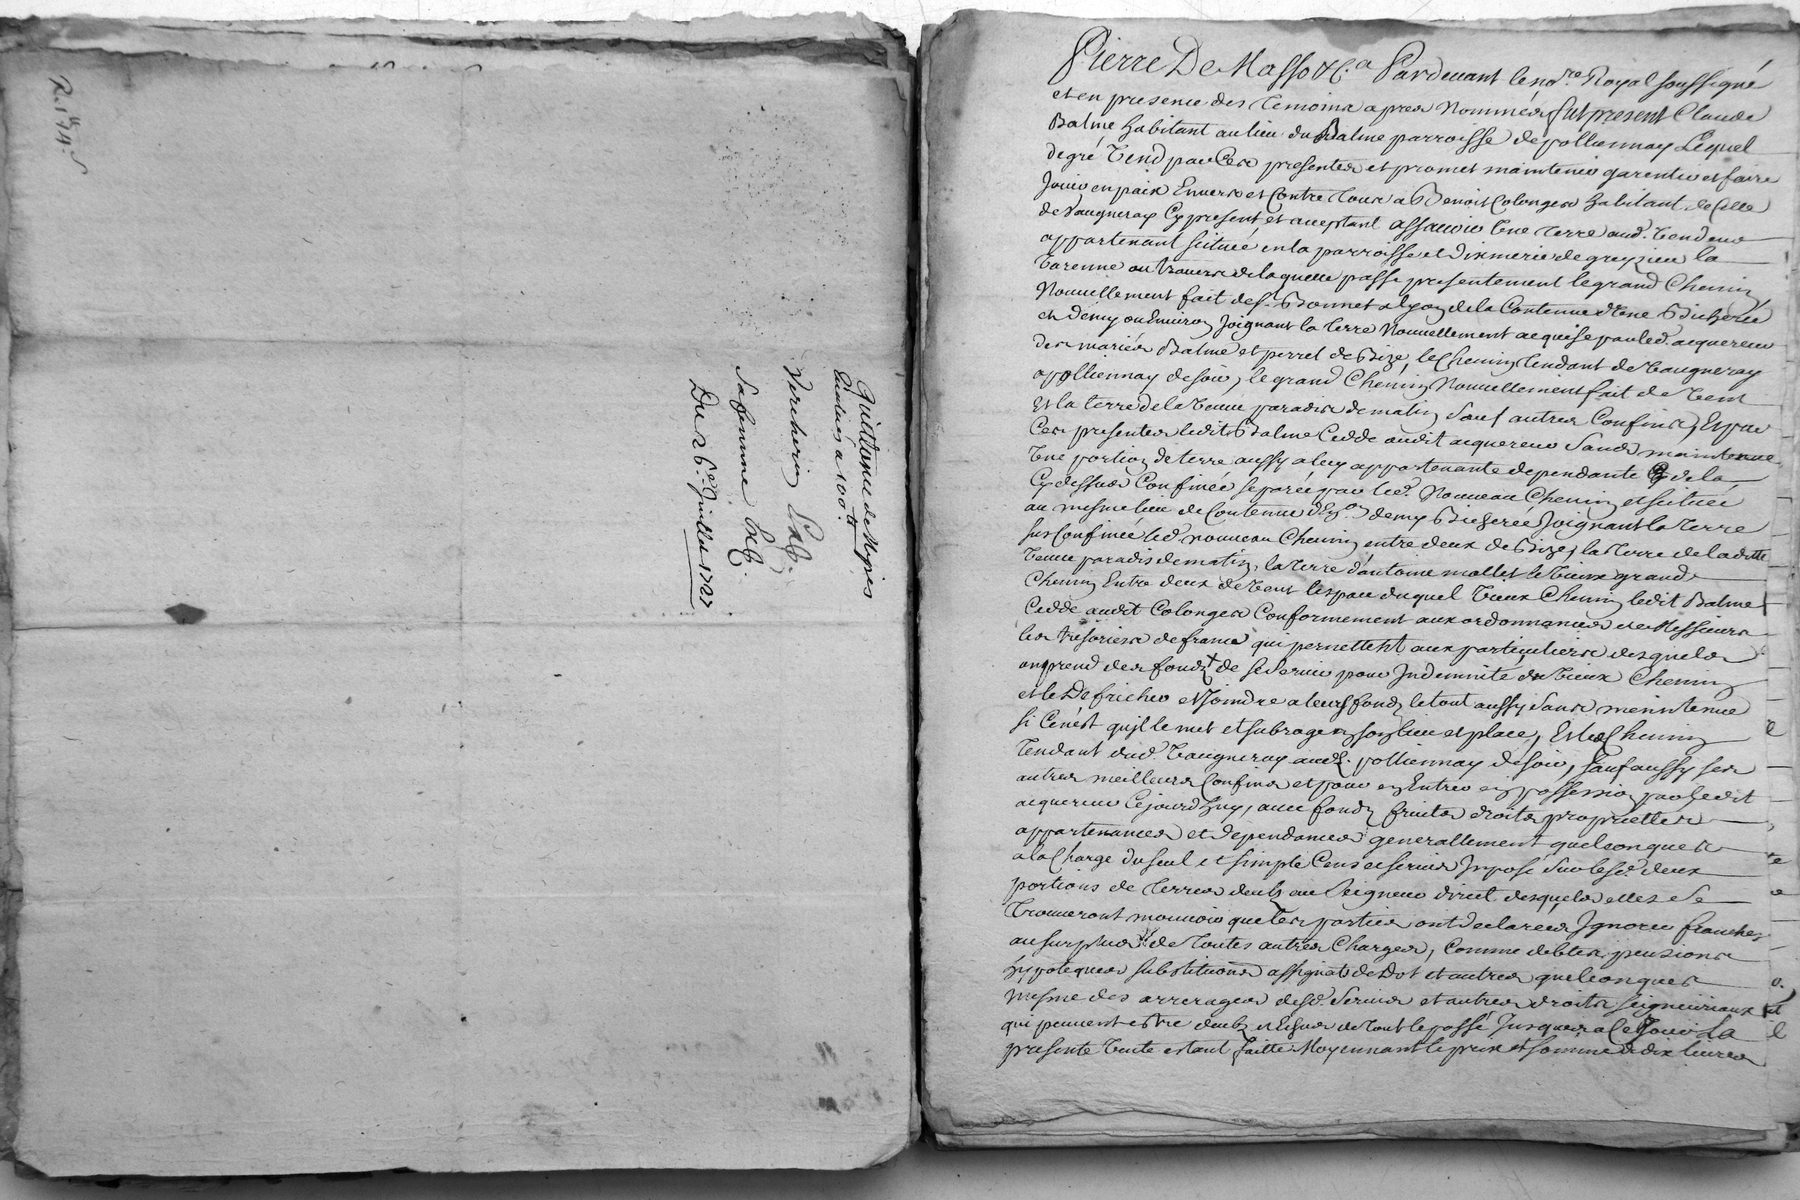 R. 1tt 4s
Quittance de Mariés
Eudises a 100tt
Vercherin
Sa femme
Du 26e Juillet 1727
Pierre De Masso &c.a Pardevant le no.re Royal soussigné
et en presence des temoins apres Nommés fut present Claude
Balme habitant au lieu du Balme parroisse de pollionnay Lequel
de gré Vend par Ces presentes et promet maintenir garentir et faire
Jouir en paix Envers et Contre tous a Benoit Colonges habitant de Celle
de Vaugneray Cy present et acceptant assavoir Une terre aud. Vendeur
appartenant scituée en la parroisse et Dixmerie de greyzieu la
Varenne au travers de laquelle passe presentement le grand Chemin
Nouvellement fait de st. Bonnet a Lyon de la Contenue d'Une Bicherée
et demy ou Environ Joignant la terre Nouvellement acquise par led. acquereur
des mariés Balme et perret de Bize, le Chemin tendant de Vaugneray
a pollionnay de soir, le grand Chemin Nouvellement fait de Vent
Et la terre de la Veuve paradis de matin Sauf autres Confins, Et par
Ces presentes ledit Balme Cedde audit acquereur Sans maintenue
Une portion de terre aussy a luy appartenante dependante de la
Cy dessus Confinée separée par led. Nouveau Chemin et scituée
au mesme lieu de Contenue d'En.on demy Bicherée Joignant la terre
sus Confinée led. nouveau Chemin entre deux de Bize, la terre de laditte
Veuve paradis de matin, la terre d'antoine mollet le Vieux grand
Chemin Entre deux de Vent lespace duquel Vieux Chemin ledit Balme
Cedde audit Colonges Conformement aux ordonnances de Messieurs
les tresoriers de france qui permettent aux particuliers desquels
on prend des fonds de se servir pour Indemnité du Vieux Chemin
et le Defricher et Joindre a leurs fonds le tout aussy sans maintenue
si Cen'est qu'il le met et subroge en son lieu et place, Et led. Chemin
Tendant dud. Vaugneray aud. pollionnay de soir, sauf aussy ses
autres meilleurs Confins et pour en Entrer en possession par ledit
acquereur Cejourd'huy, avec fonds fruits droits proprietés
appartenances et dependances generallement quelconques
a la Charge du seul et simple Cens et servis Imposé sur lesd. deux
portions de terres deubs au Seigneur direct desquels elles se
Trouveront mouvoir que les parties ont declarées Ignorer franches
au surplus de toutes autres Charges, Comme debtes, pensions
hypoteques substitutions assignats de Dot et autres quelconques
mesme des arrerages desd. Servis et autres droits seigneuriaux
qui peuvent estre deubs et Echus de tout le passé Jusques a Ce Jour La
presente Vente estant faitte Moyennant le prix et somme de dix livres